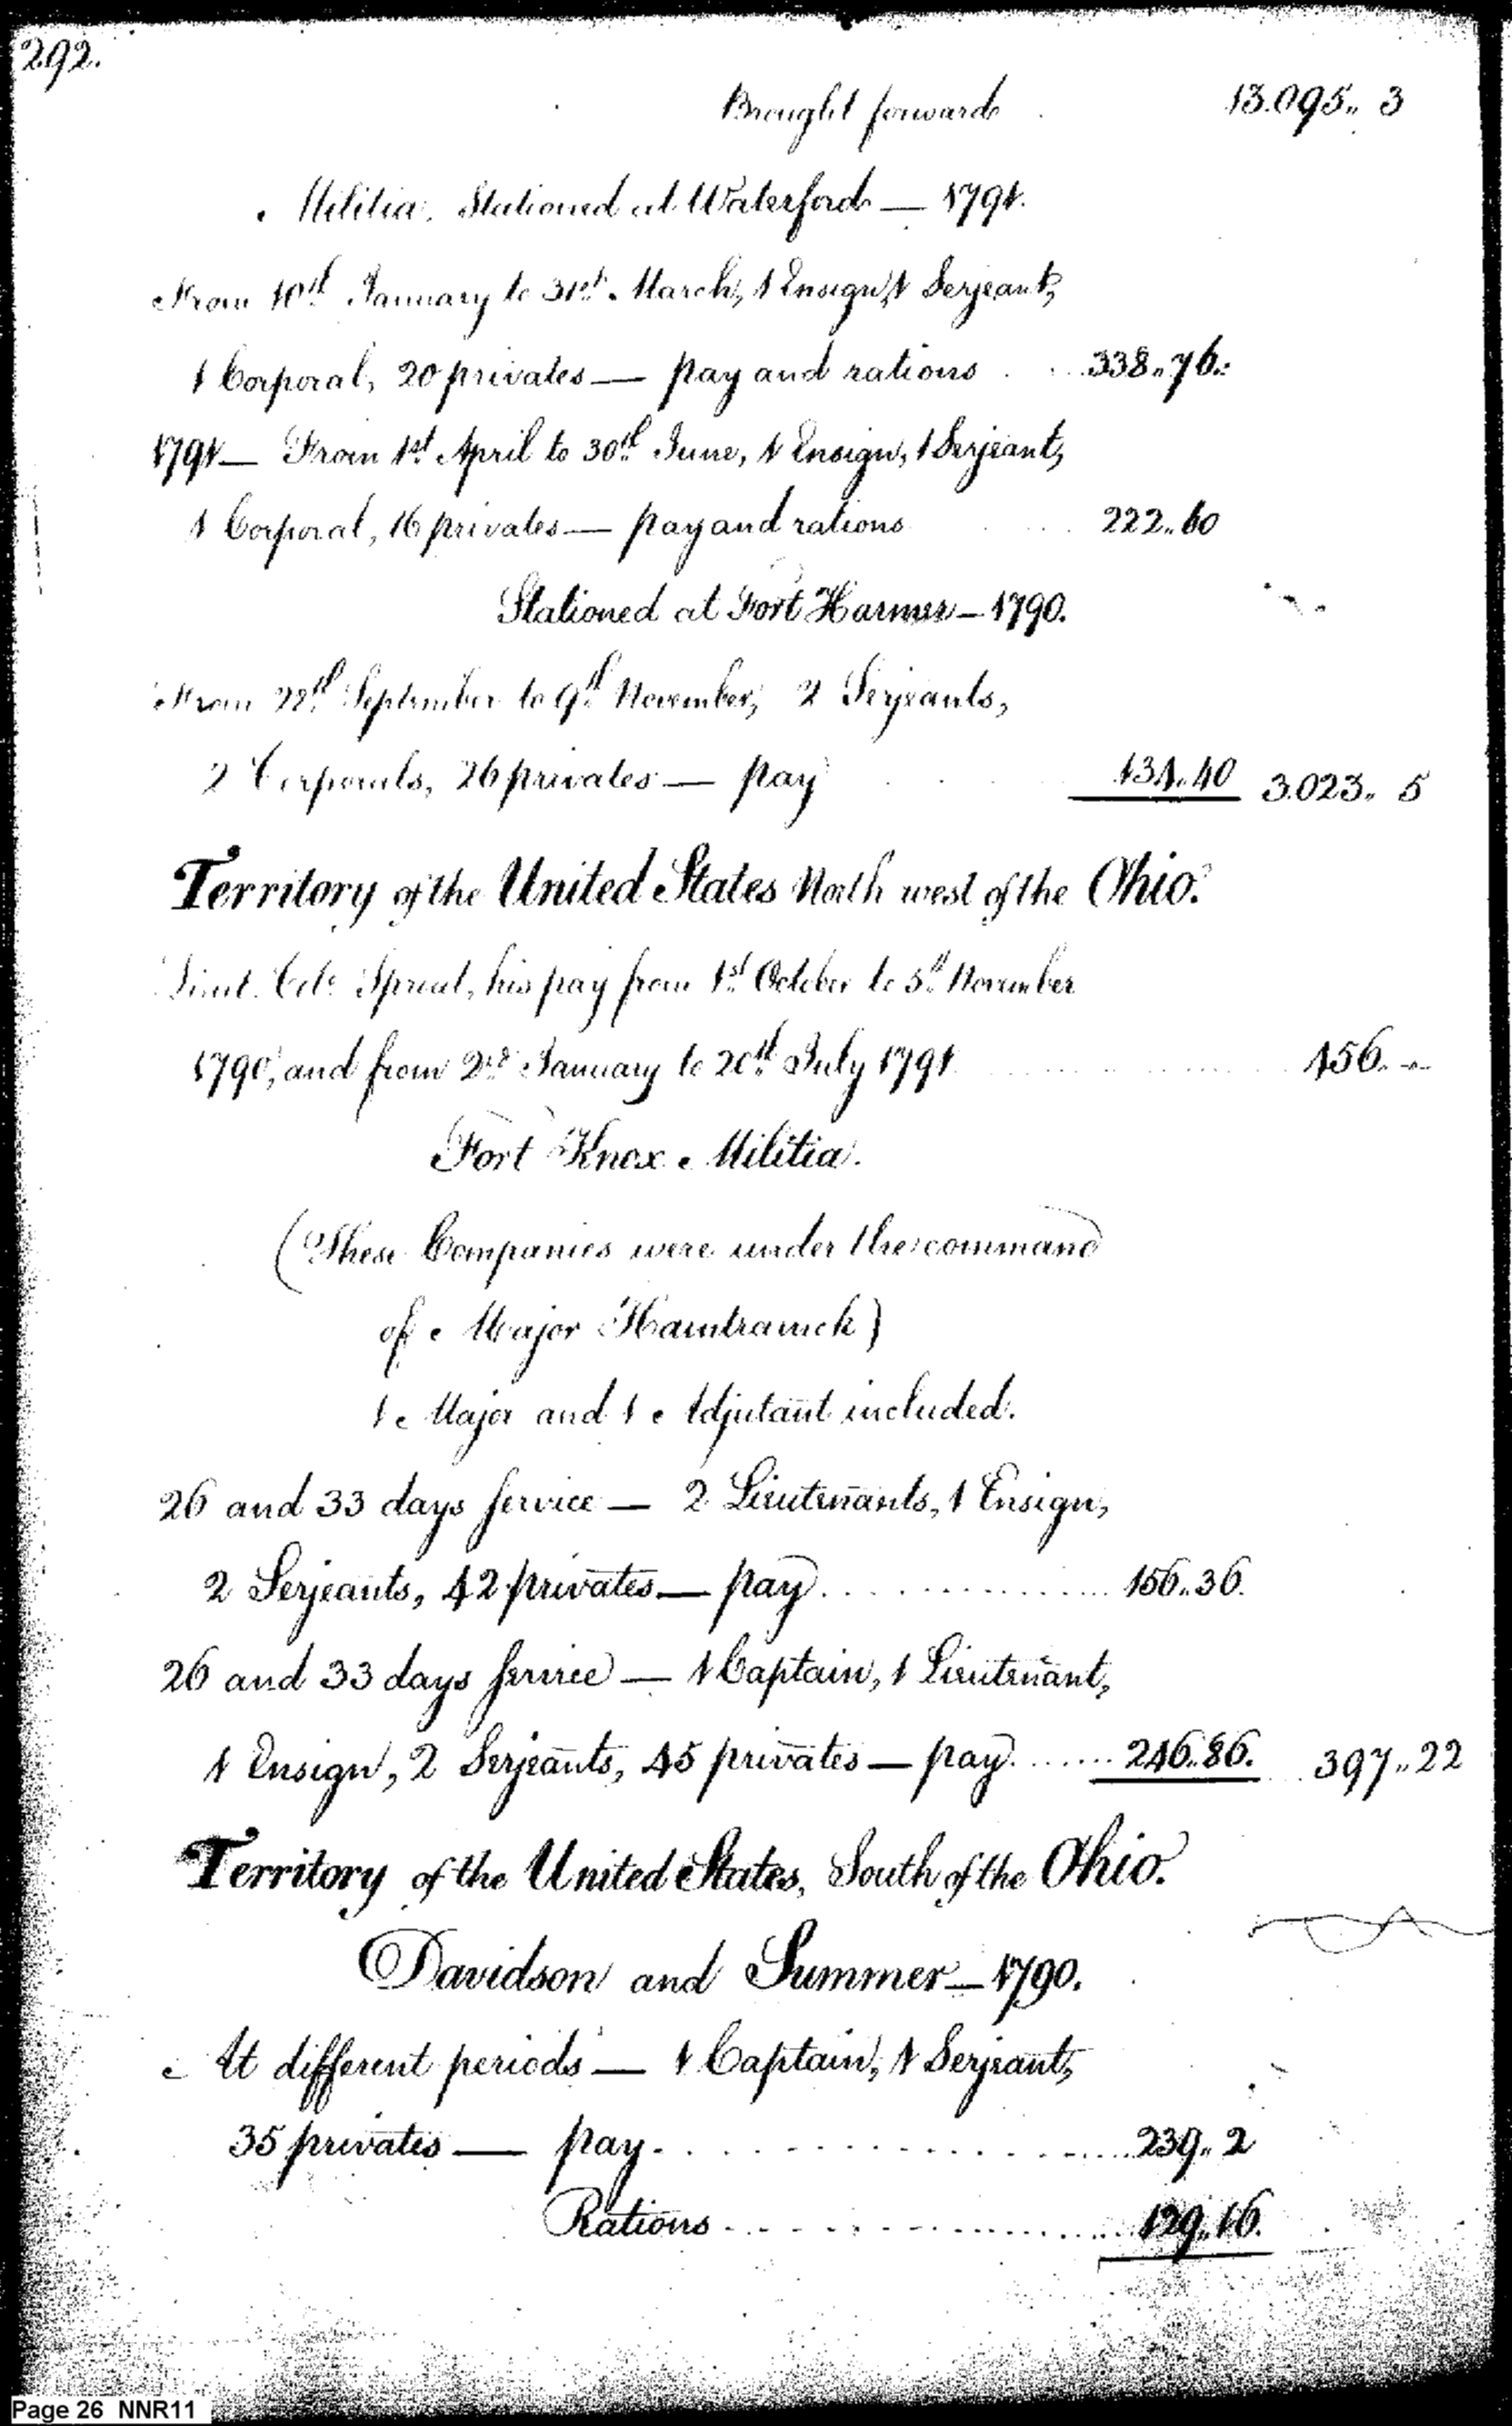 292.
Brought forward 13.095,, 3
Militia, Stationed at Waterford — 1791.
From 10th January to 31st March, 1 Ensign, 1 Serjeant,
1 Corporal, 20 privates — pay and rations 338,,76.
1791 — From 1st April to 30th June, 1 Ensign, 1 Serjeant,
1 Corporal, 16 privates — pay and rations 222,,60
Stationed at Fort Harmer — 1790.
From 22th September to 9th November, 2 Serjeants,
2 Corporals, 26 privates — pay 131,,40 3.023,, 5
Territory of the United States North west of the Ohio.
Lieut. Colo Sproat, his pay from 1st October to 5th November
1790, and from 2nd January to 20th July 1791 456. --
Fort Knox Militia.
(These Companies were under the command
of Major Hamtramck)
1 Major and 1 Adjutant included.
26 and 33 days service — 2 Lieutenants, 1 Ensign,
2 Serjeants, 42 privates — pay 156,,36.
26 and 33 days service — 1 Captain, 1 Lieutenant,
1 Ensign, 2 Serjeants, 45 privates — pay 246,,86. 397,,22
Territory of the United States, South of the Ohio.
Davidson and Summer — 1790.
At different periods — 1 Captain, 1 Serjeant,
35 privates — pay 239,, 2
Rations 129,,16.
Page 26 NNR11